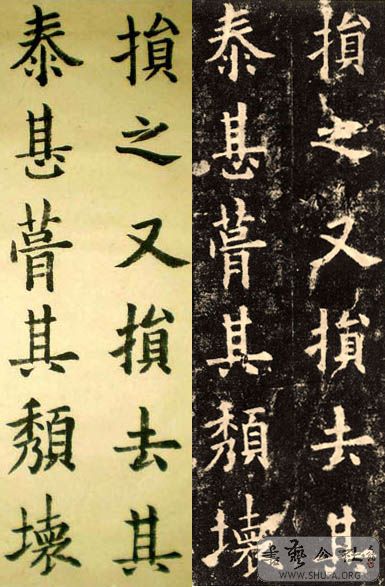 損之又損去其
泰甚葺其頽壞
損之又損去其
泰甚葺其頽壞
書藝公社
WWW.SHU-A.ORG